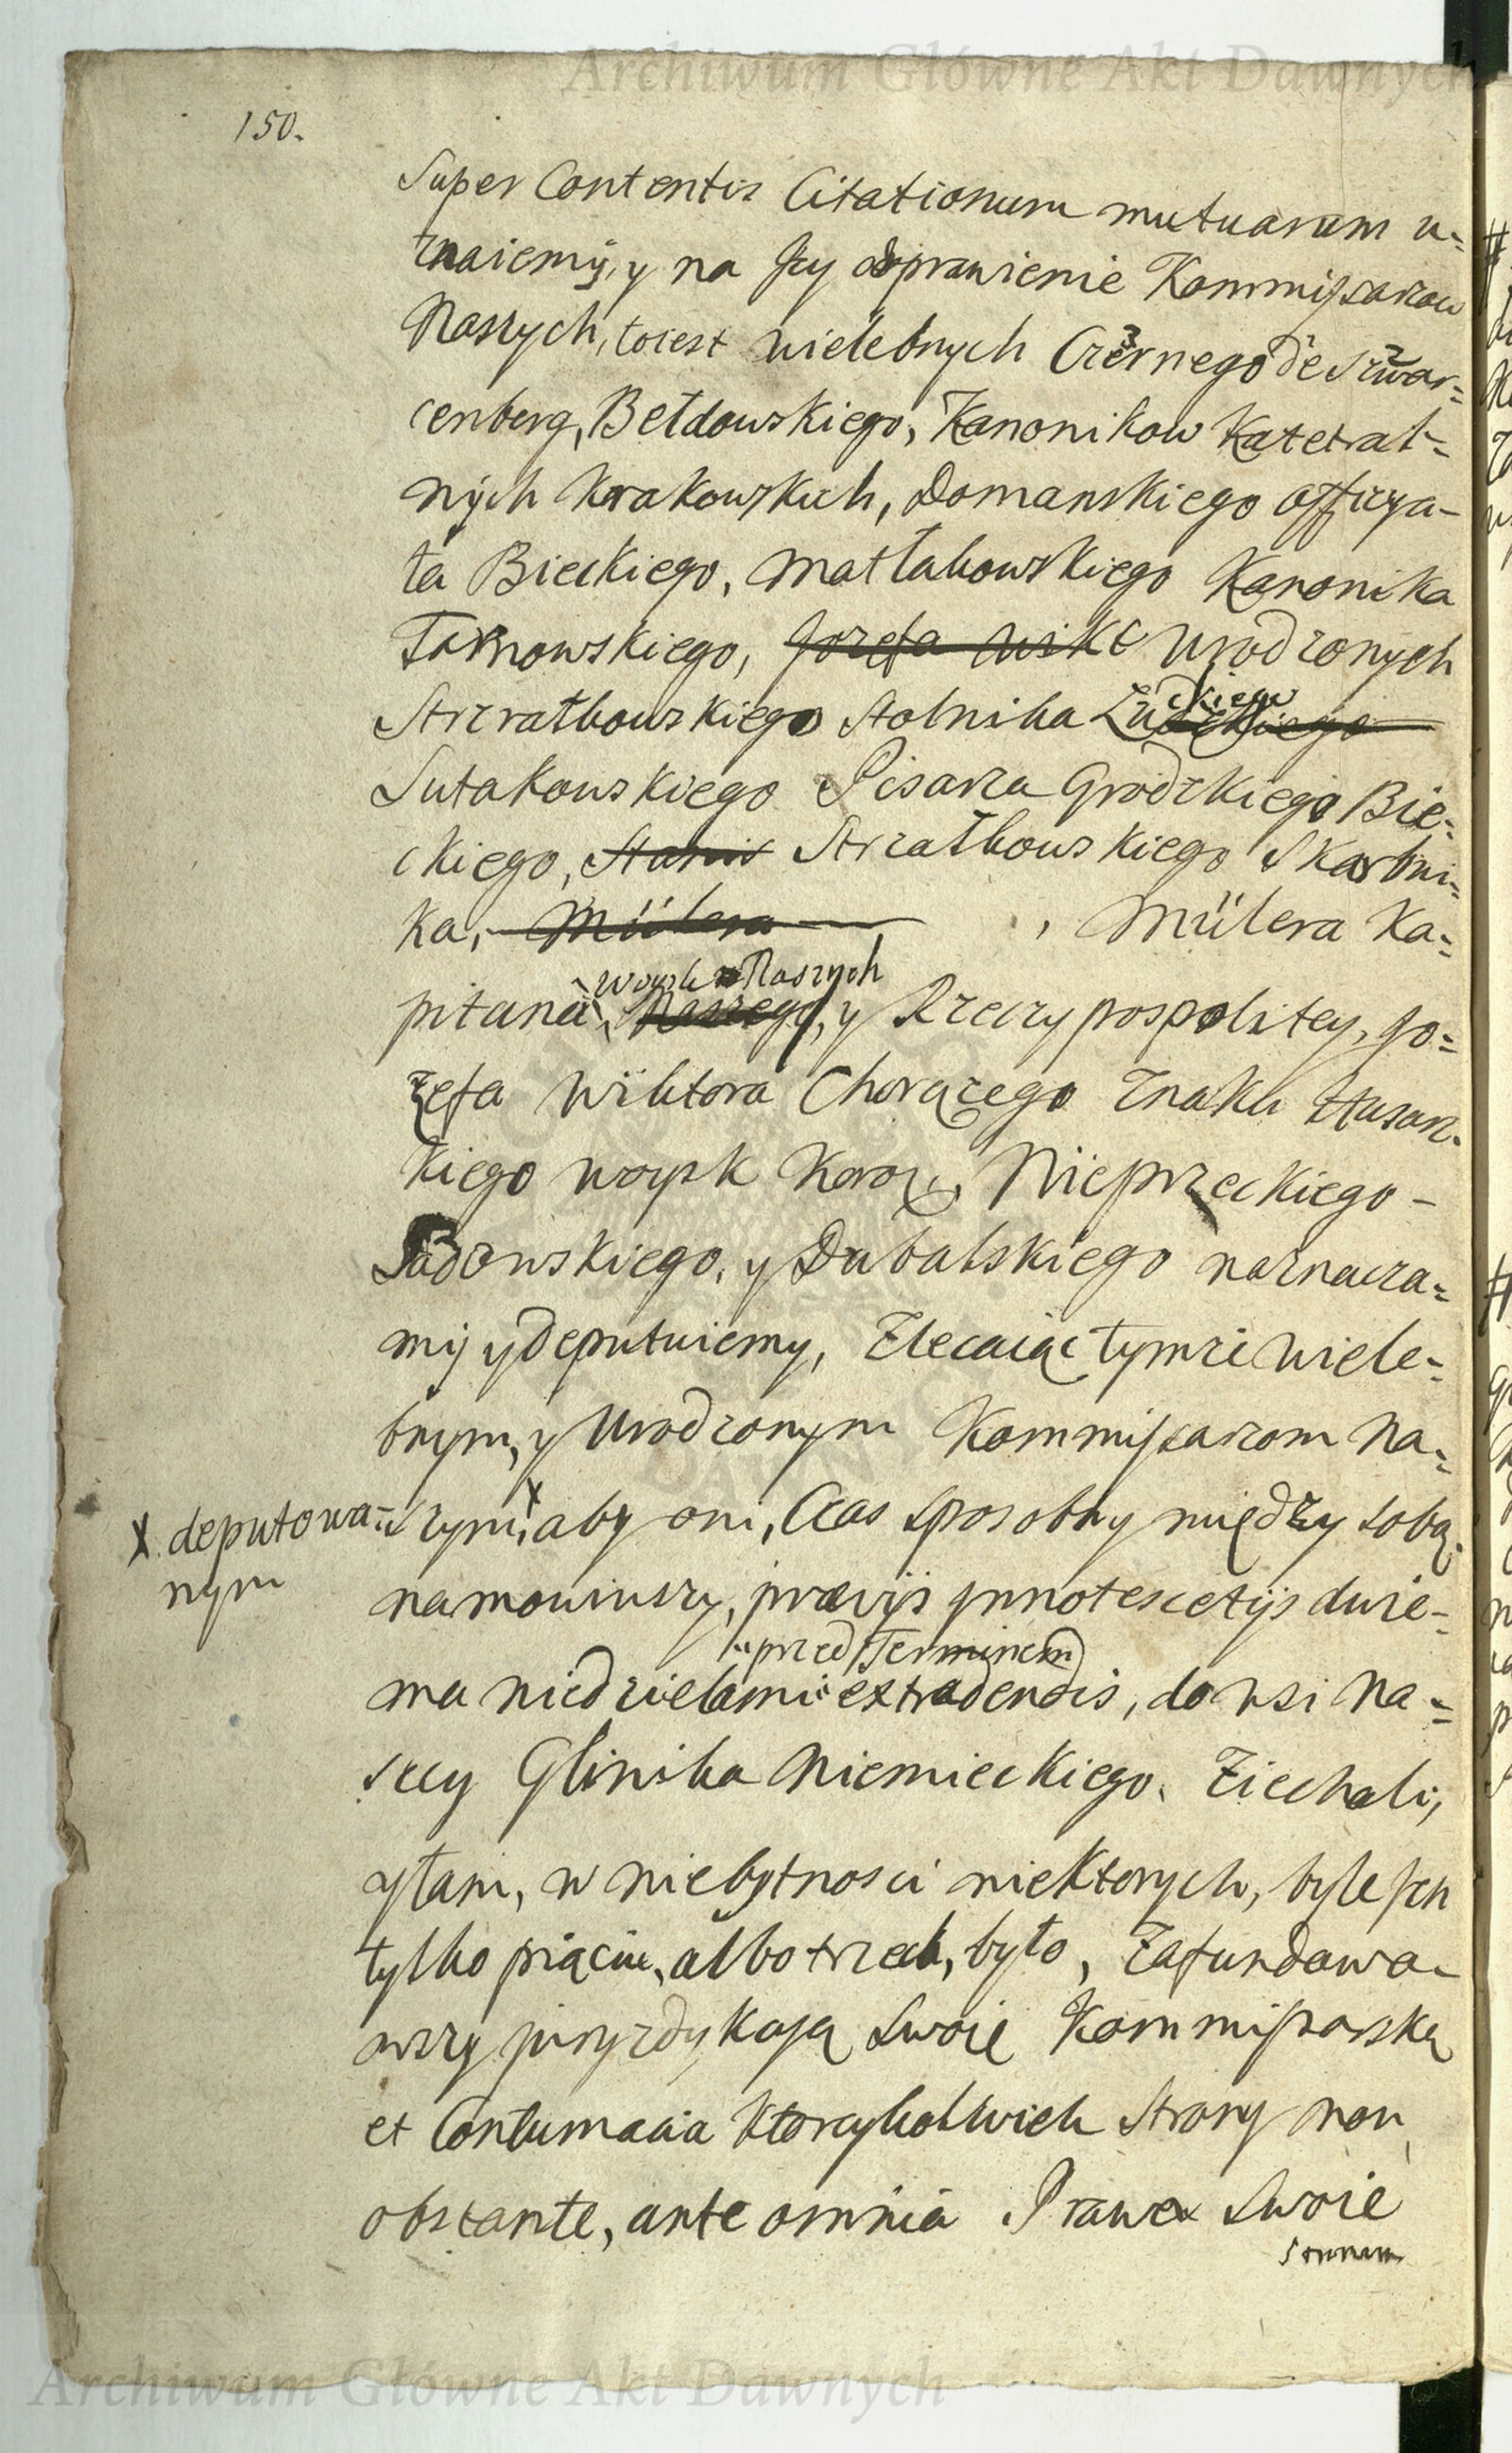 Archiwum Główne Akt Dawnych
150.
Super Contentis Citationum mutuarum u=
znaiemy, y na Jey odprawienie Kommissarzow
Naszych, toiest wielebnych Czernego de Szwar=
cenberg, Bełdowskiego, Kanonikow Katetral=
nych Krakowskich, Domanskiego Officya-
ła Bieckiego, Matłakowskiego Kanonika
Tarnowskiego, Jozefa Wikt Urodzonych
Strzałkowskiego Stolnika
ckiego
Lutakowskiego Pisarza Grodzkiego Bie=
ckiego, Stanis Strzałkowskiego Skarbni=
ka, Müllera , Mülera Ka=
woysk Naszych
pitana, Naszego, y Rzeczypospolitey, Jo=
zefa Wiktora Chorązego Znaku Husar-
kiego woysk Koro: Nieprzeckiego -
Sadowskiego, y Dubalskiego naznacza=
my y deputuiemy, Zlecaiąc tymze wiele=
bnym, y Urodzonym Kommissarzom Na=
X deputowa=
nym
szym, X aby oni, Czas sposobny między sobą
namowiwszy, prævijs Jnnotescetijs dwie-
przed Terminem
ma niedzielami extradendis, do wsi Na=
szey Glinika Niemieckiego. Ziechali,
y tam, w niebytnosci niektorych, byle Jch
tylko piąciu, albo trzech, było, Zafundowa-
wszy juryzdykcyą Swoię Kommissarską
et Contumacia ktoreykolwiek Strony non
obstante, ante omnia Prawa Swoie
Archiwum Główne Akt Dawnych